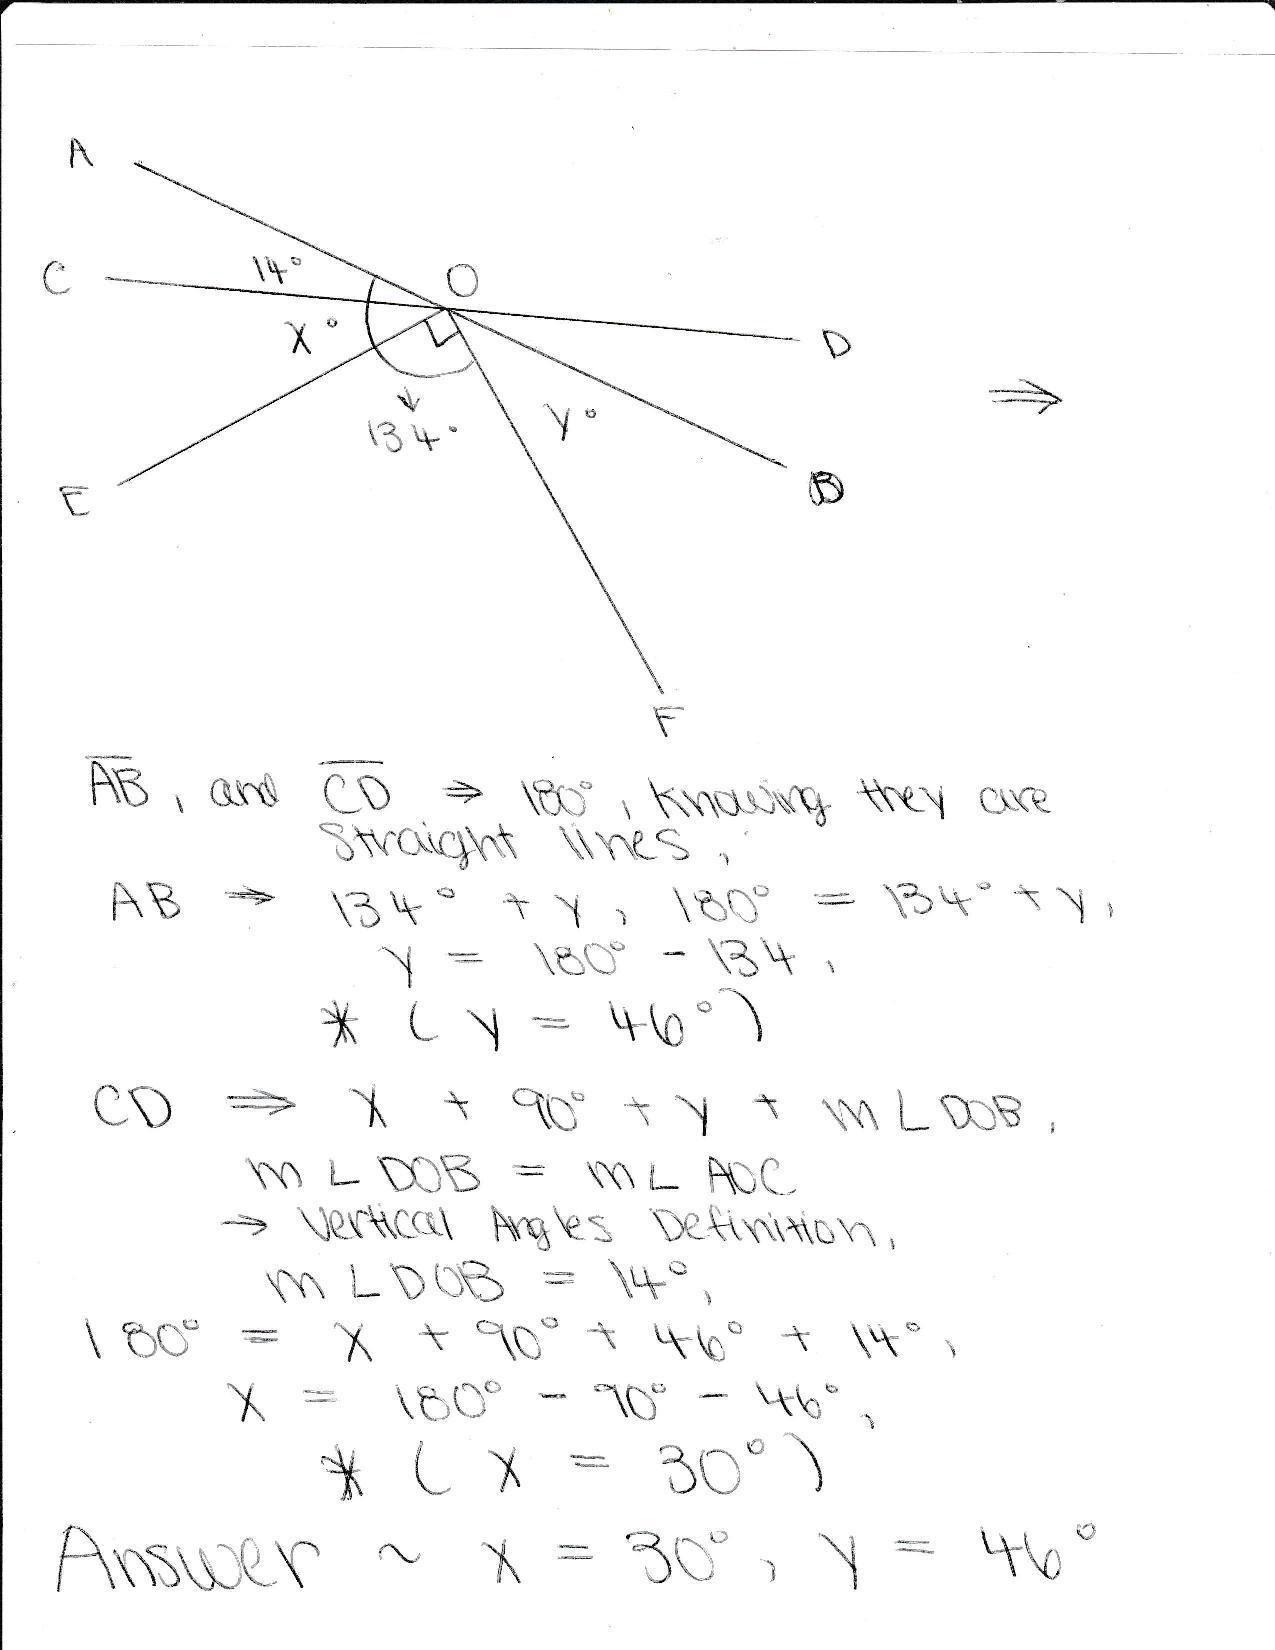 A
C
14°
O
X°
D
134°
Y°
E
B
F
AB, and CD ⇒ 180°, knowing they are
straight lines,
AB ⇒ 134° + Y, 180° = 134° + Y,
Y = 180° - 134,
* ( Y = 46° )
CD ⇒ X + 90° + Y + m∠DOB,
m∠DOB = m∠AOC
→ Vertical Angles Definition,
m∠DOB = 14°,
180° = X + 90° + 46° + 14°,
X = 180° - 90° - 46°,
* ( X = 30° )
Answer ~ X = 30°, Y = 46°